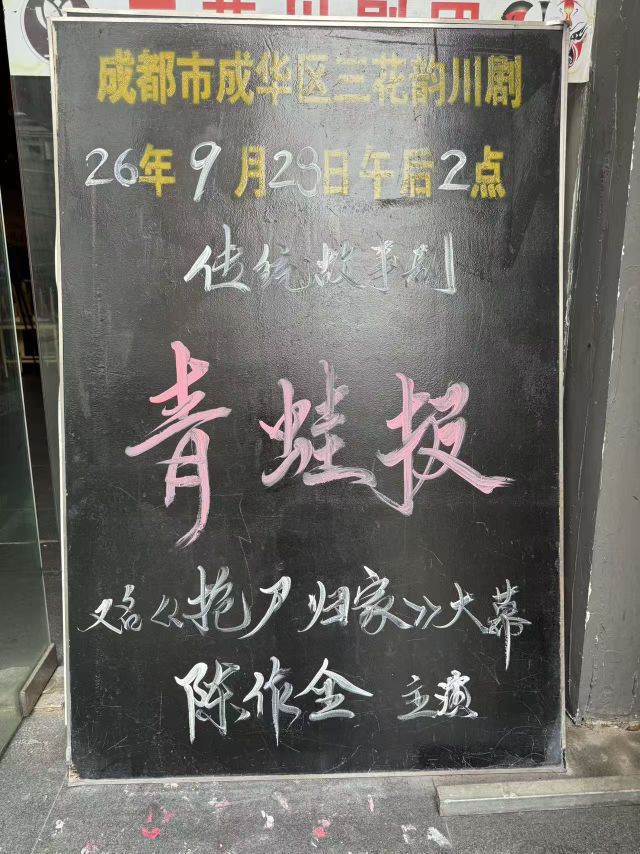 成都市成华区三花韵川剧
26年9月28日午后2点
传统故事剧
青蛙报
又名《抢尸归家》大幕
陈作全 主演